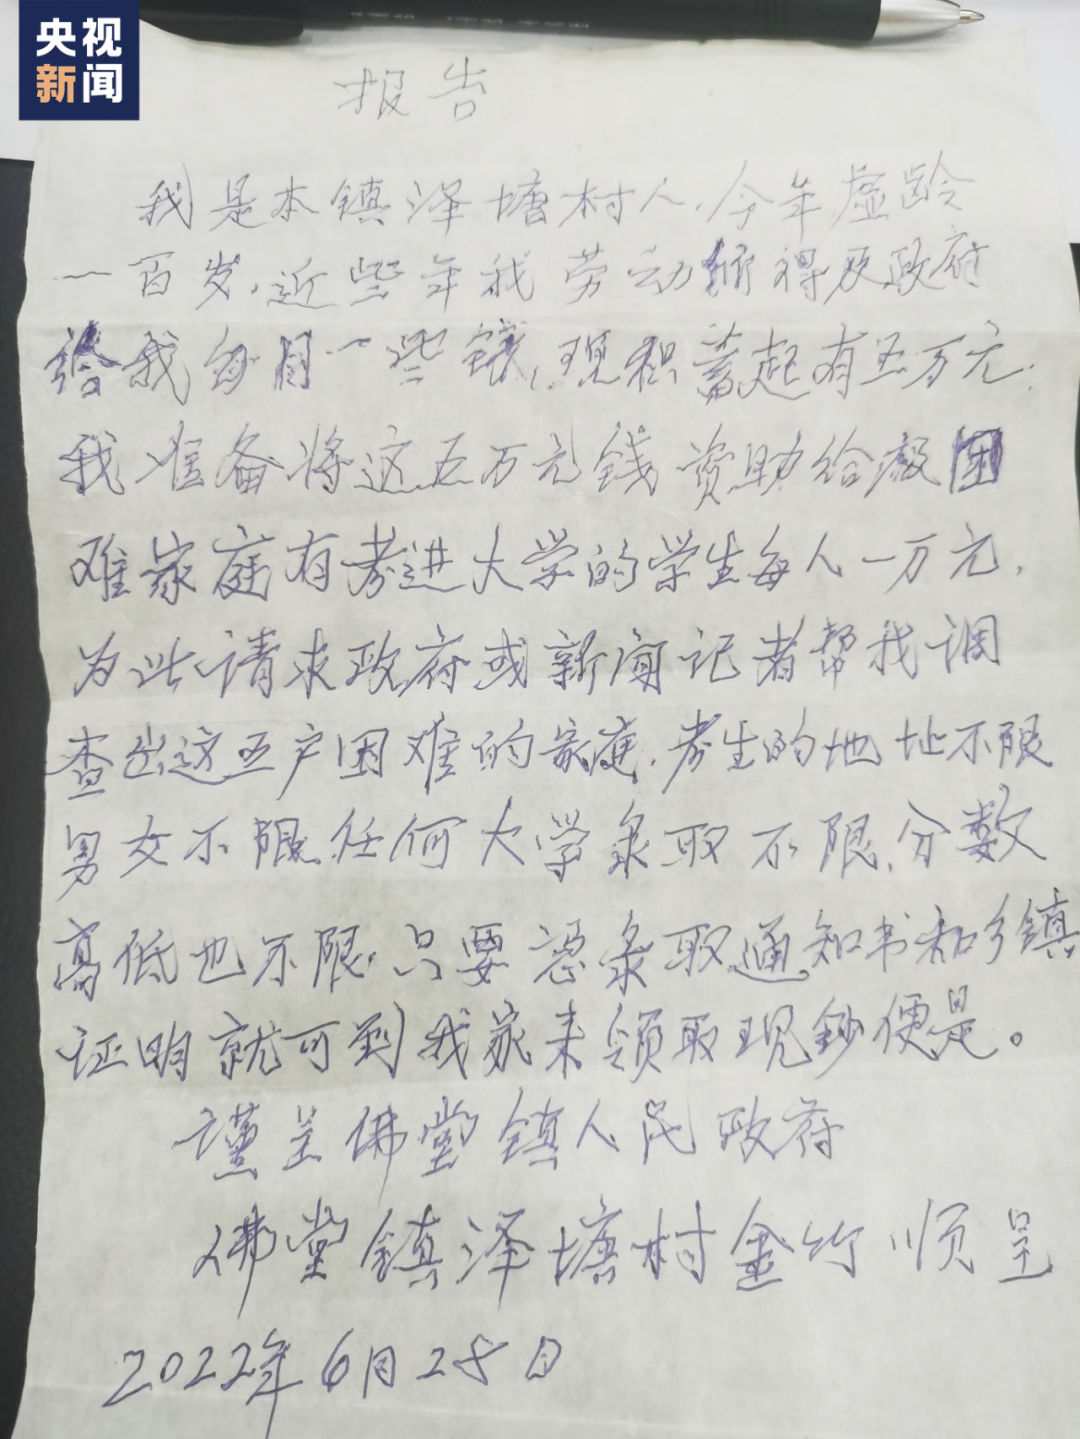 央视
新闻
报告
我是本镇泽塘村人.今年虚龄
一百岁.近些年我劳动所得及政府
给我每月一些钱,现积蓄起有五万元.
我准备将这五万元钱资助给
难家庭有考进大学的学生每人一万元.
为此请求政府或新闻记者帮我调
查出这五户困难的家庭.考生的地址不限
男女不限.任何大学录取不限.分数
高低也不限.只要凭录取通知书和乡镇
证明就可到我家来领取现鈔便是。
谨呈佛堂镇人民政府
佛堂镇泽塘村金竹顺呈
2022年6月28日